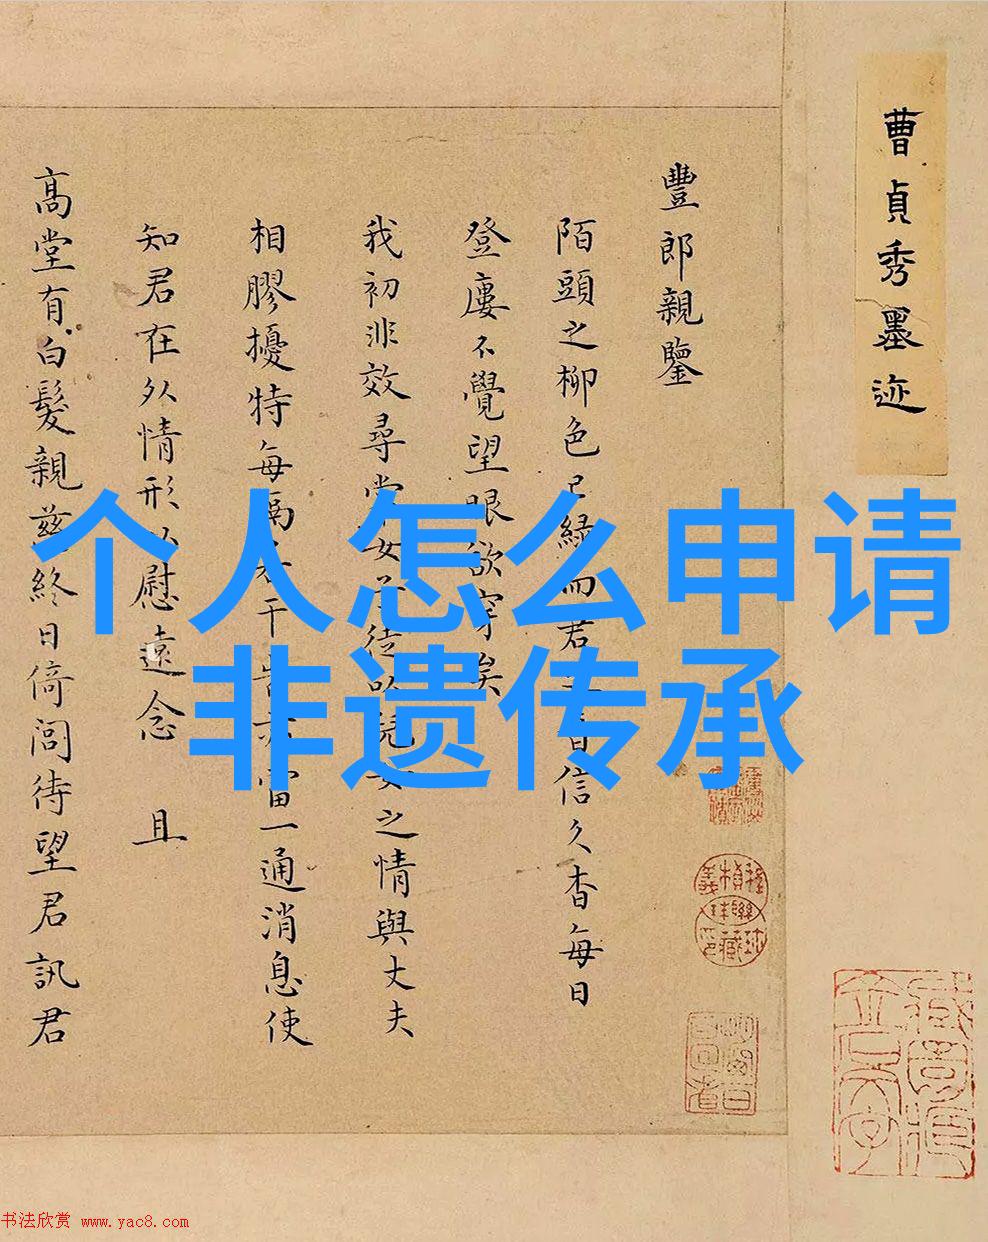 曹貞秀墨迹
豐郎親鑒
陌頭之柳色已緑而君之音信久杳每日
登廔不覺望眼欲穿矣
我初非效尋常女子徒以兒女之情與丈夫
相膠擾特每隔若干告亦當一通消息使
知君在外情形以慰遠念 且
高堂有白髮親慈終日倚閭待望君訊君
个人怎么申请
非遗传承
书法欣赏 www.yac8.com